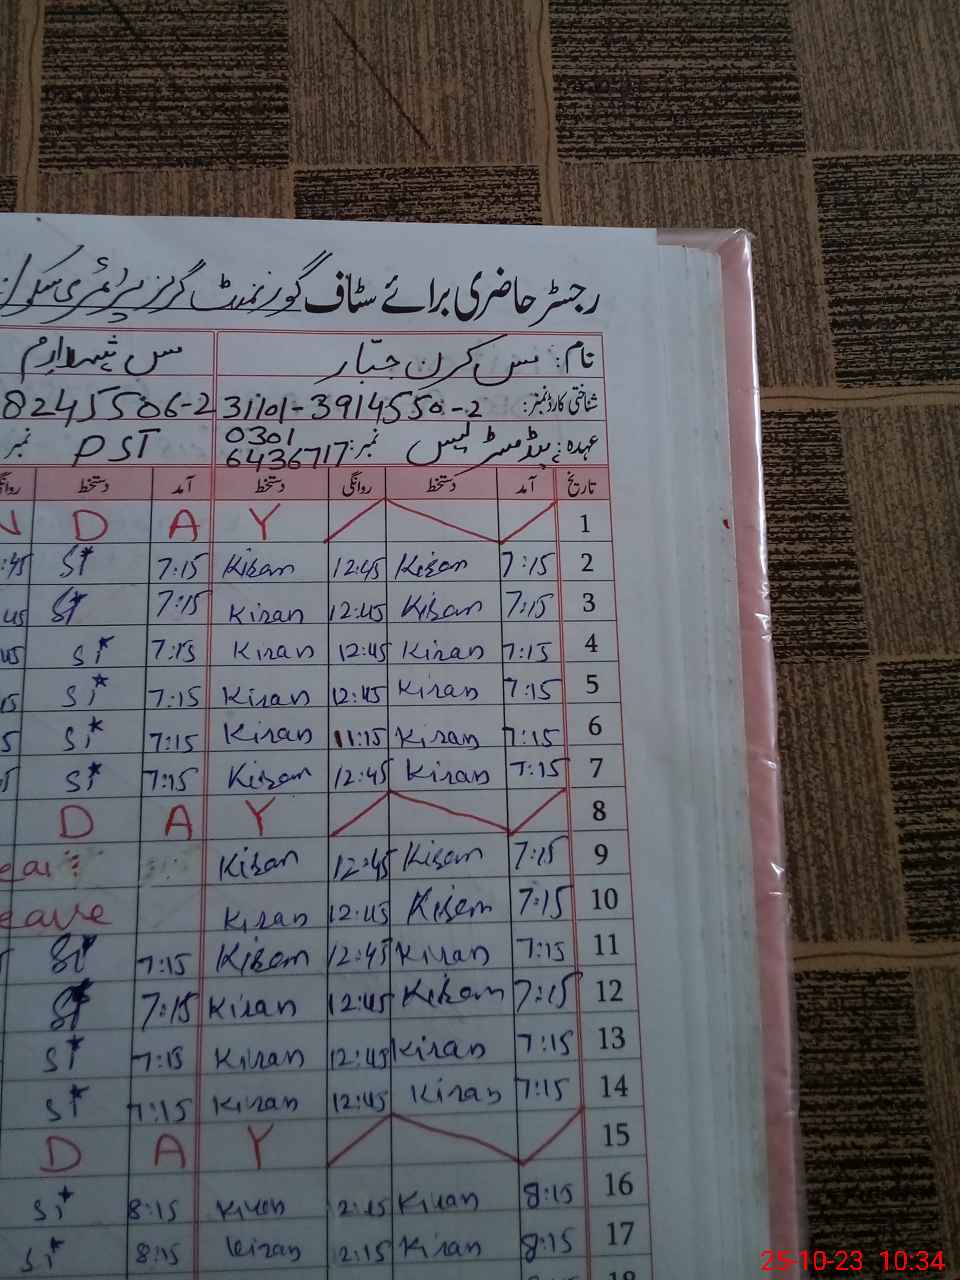 رجسٹر حاضری برائے سٹاف گورنمنٹ گرلز پرائمری سکول
نام: مس کرن جبّار مس
شناختی کارڈ نمبر: 31101-3914550-2 8245506-2
عہدہ: ہیڈمسٹریس نمبر: 0301 6436717 PST نمبر
تاریخ آمد دستخط روانگی دستخط آمد دستخط
1 Y A D N
2 7:15 Kiran 12:45 Kiran 7:15 Si :45
3 7:15 Kiran 12:45 Kiran 7:15 Si 45
4 7:15 Kiran 12:45 Kiran 7:15 Si 45
5 7:15 Kiran 12:45 Kiran 7:15 Si 15
6 7:15 Kiran 11:15 Kiran 7:15 Si 5
7 7:15 Kiran 12:45 Kiran 7:15 Si
8 Y A D
9 7:15 Kiran 12:45 Kiran
10 7:15 Kiran 12:45 Kiran eave
11 7:15 Kiran 12:45 Kiran 7:15 Si
12 7:15 Kiran 12:45 Kiran 7:15 Si
13 7:15 Kiran 12:45 Kiran 7:15 Si
14 7:15 Kiran 12:45 Kiran 7:15 Si
15 Y A D
16 8:15 Kiran 2:15 Kiran 8:15 Si
17 8:15 Kiran 2:15 Kiran 8:15 Si
25-10-23 10:34